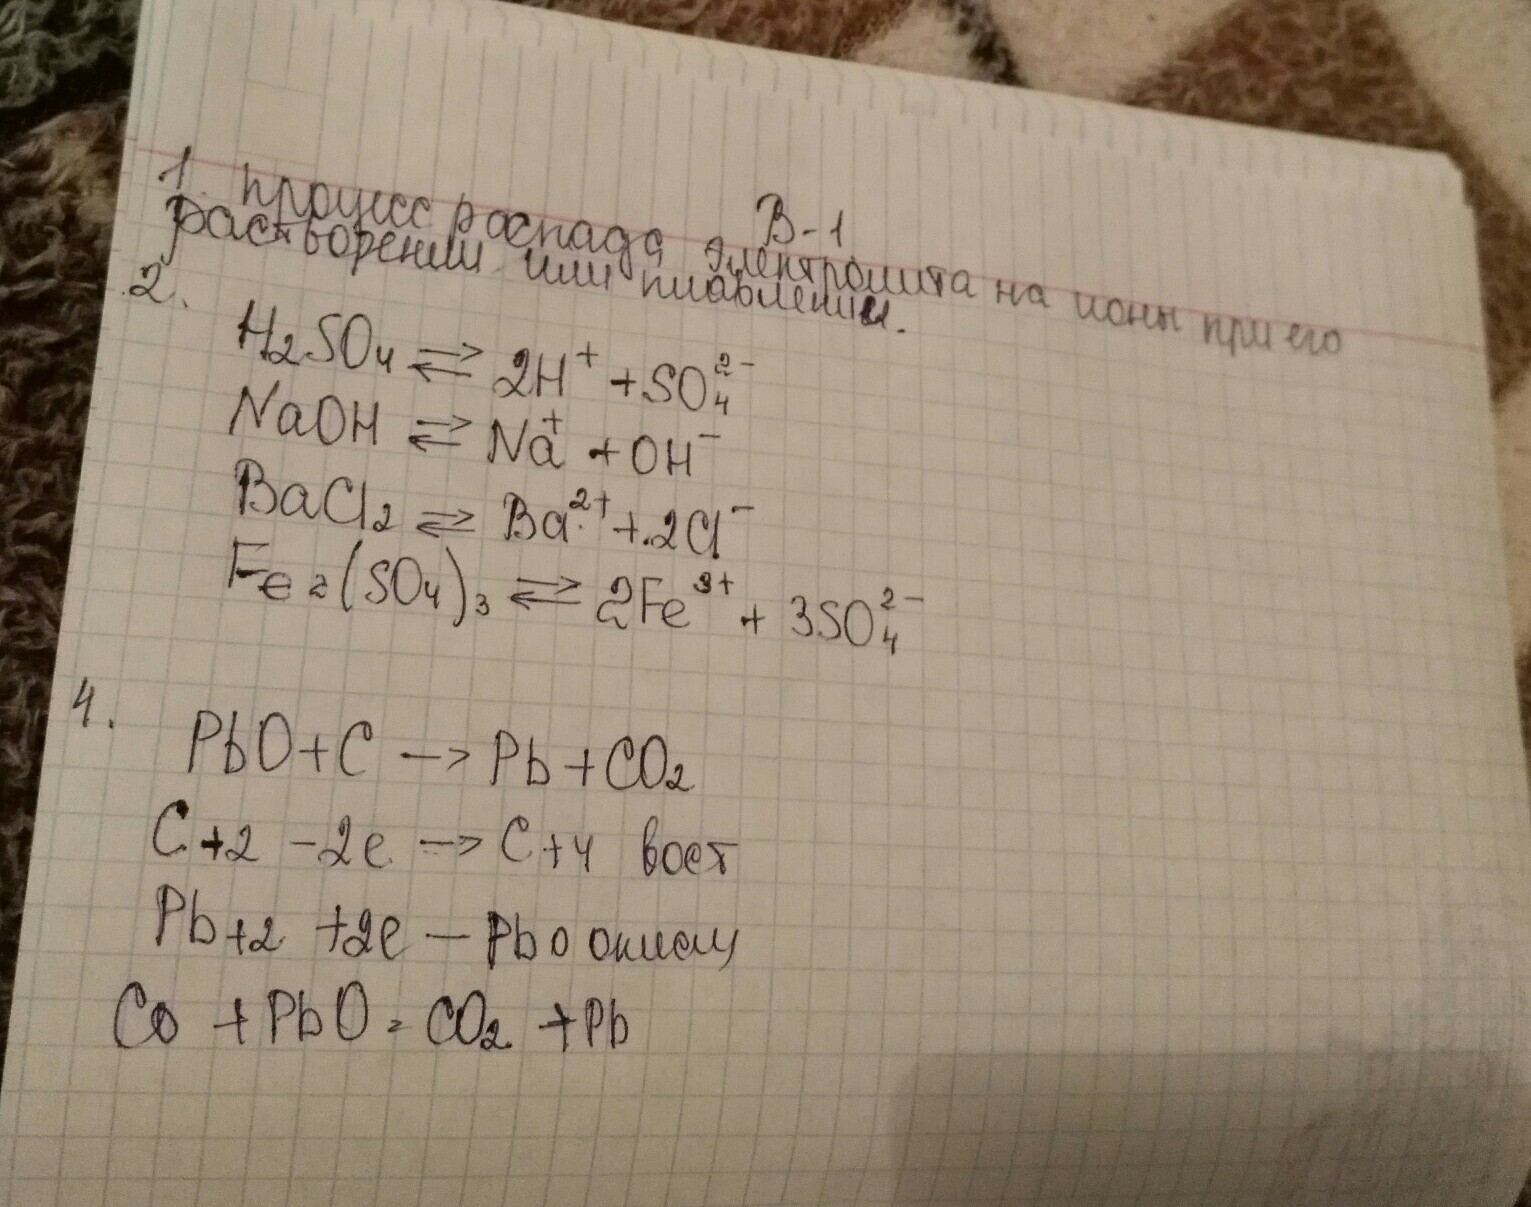 В-1
1. процесс распада электролита на ионы при его
растворении или плавлении.
2.
H₂SO₄ ⇌ 2H⁺ + SO₄²⁻
NaOH ⇌ Na⁺ + OH⁻
BaCl₂ ⇌ Ba²⁺ + 2Cl⁻
Fe₂(SO₄)₃ ⇌ 2Fe³⁺ + 3SO₄²⁻
4.
PbO + C → Pb + CO₂
C+2 -2e → C+4 вост
Pb+2 +2e — Pb0 окисл
CO + PbO = CO₂ + Pb